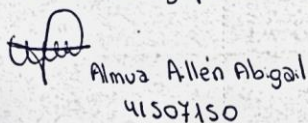 Almua Allén Abigail
41507150